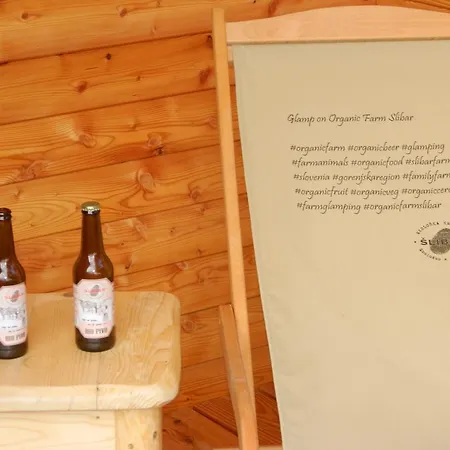 Glamp on Organic Farm Slibar
#organicfarm #organicbeer #glamping
#farmanimals #organicfood #slibarfarm
#slovenia #gorenjskaregion #familyfarm
#organicfruit #organicveg #organiccer
#farmglamping #organicfarmslibar
ŠLIB